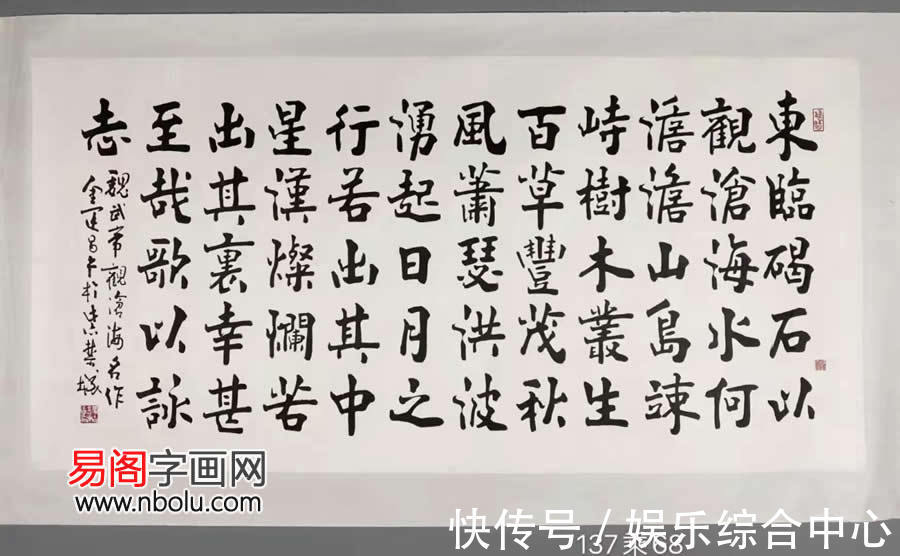 東臨碣石以
觀滄海水何
澹澹山島竦
峙樹木叢生
百草豐茂秋
風蕭瑟洪波
湧起日月之
行若出其中
星漢燦爛若
出其裏幸甚
至哉歌以詠
志
魏武帝觀滄海名作
金运昌书於
易阁字画网
www.nbolu.com
137乘68
快传号/娱乐综合中心